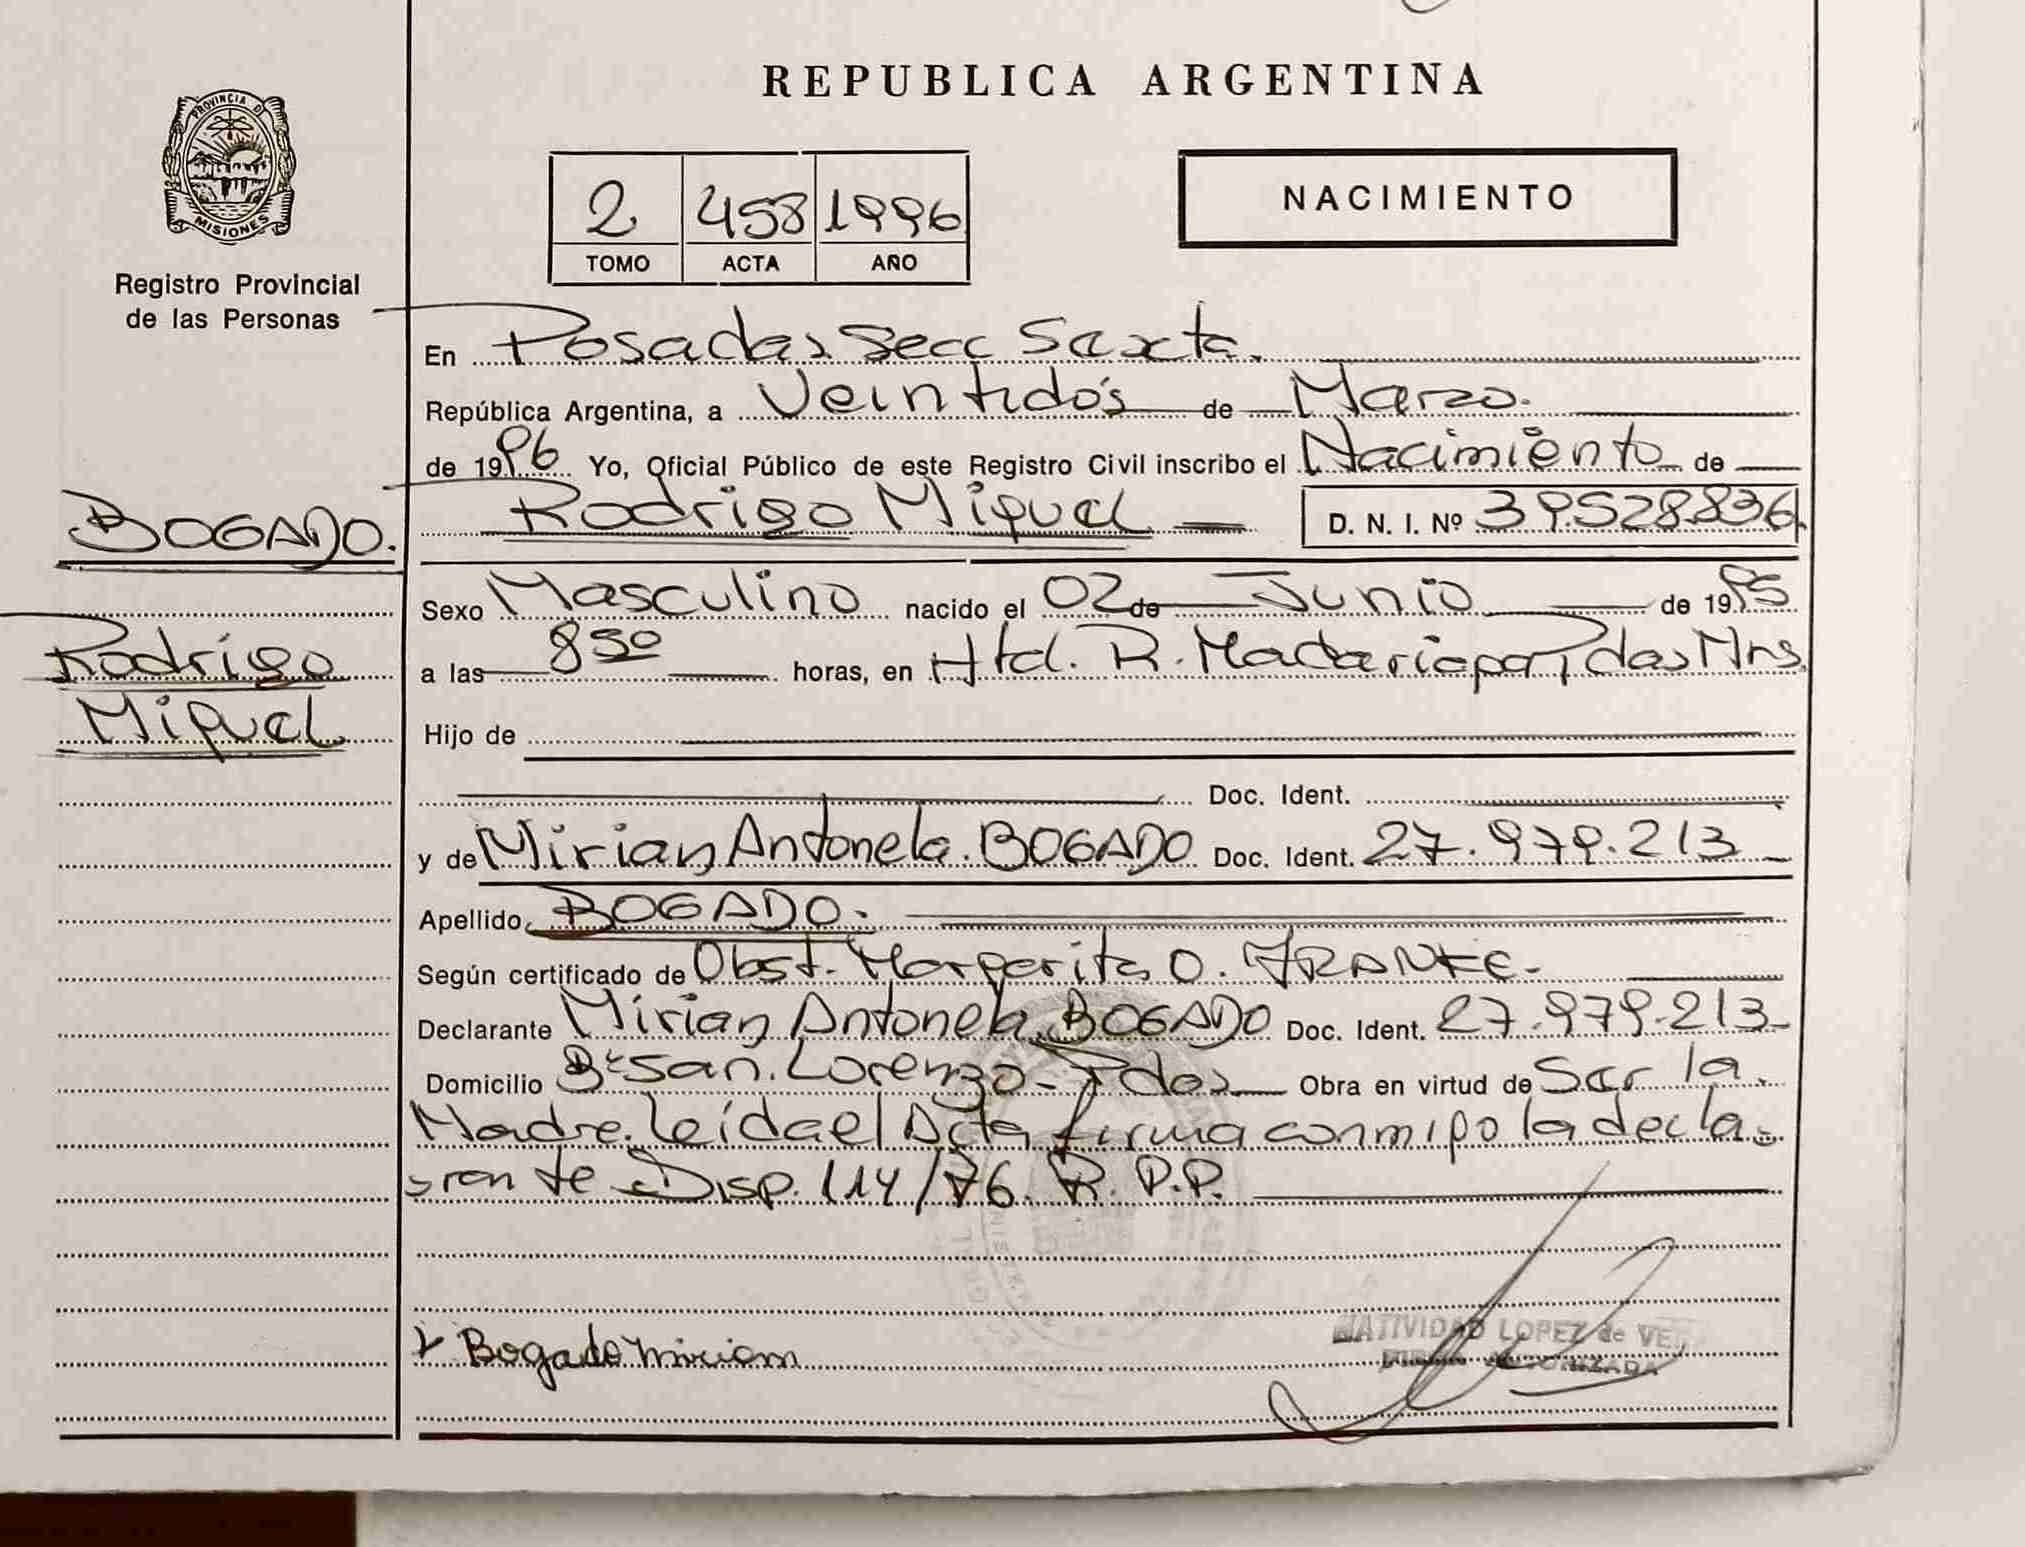 PROVINCIA DE
MISIONES
Registro Provincial
de las Personas
BOGADO.
Rodrigo
Miguel
REPUBLICA ARGENTINA
2 458 1996
TOMO ACTA AÑO
NACIMIENTO
En Posadas Secc Sexta.
República Argentina, a Veintidós de Marzo.
de 1996 Yo, Oficial Público de este Registro Civil inscribo el Nacimiento de
Rodrigo Miguel D. N. I. Nº 39.528.836.
Sexo Masculino nacido el 02 de Junio de 1995
a las 8 50 horas, en Htal. R. Madariaga Pdas Mns.
Hijo de
Doc. Ident.
y de Mirian Antonela. BOGADO Doc. Ident. 27.979.213
Apellido BOGADO.
Según certificado de Obst. Margarita O. FRANKE.
Declarante Mirian Antonela BOGADO Doc. Ident. 27.979.213
Domicilio Bº San. Lorenzo - Pdas Obra en virtud de Ser la
Madre. leída el Acta firma conmigo la decla
rante Disp. 114/76. R. P.P.
Bogado Miriam
NATIVIDAD LOPEZ de
FIRMA AUTORIZADA